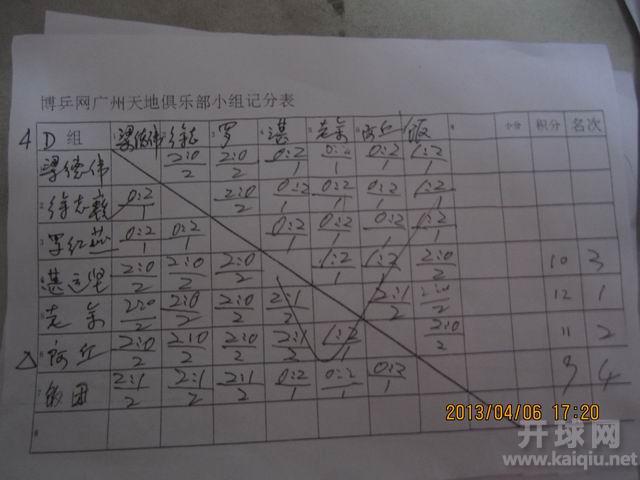 博乒网广州天地俱乐部小组记分表
4 D 组 梁德伟 徐志 罗 湛 老余 阿丘 饭 小分 积分 名次
梁德伟 2:0/2 2:0/2 0:2/1 0:2/1 0:2/1 1:2/1
2 徐志 0:2/1 2:0/2 0:2/1 0:2/1 0:2/1 1:2/1
3 罗红燕 0:2/1 0:2/1 0:2/1 0:2/1 0:2/1 1:2/1
湛 坚 2:0/2 2:0/2 2:0/2 1:2/1 1:2/1 2:0/2 10 3
老余 2:0/2 2:0/2 2:0/2 2:1/2 2:1/2 2:0/2 12 1
△ 阿丘 2:0/2 2:0/2 2:0/2 2:1/2 1:2/1 2:0/2 11 2
7 饭团 2:1/2 2:1/2 2:1/2 0:2/1 0:2/1 0:2/1 9 4
8
2013/04/06 17:20
开球网
www.kaiqiu.net